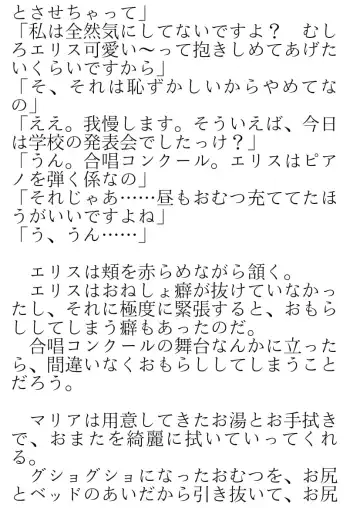 とさせちゃって」
「私は全然気にしてないですよ？　むし
ろエリス可愛い～って抱きしめてあげた
いくらいですから」
「そ、それは恥ずかしいからやめてな
の」
「ええ。我慢します。そういえば、今日
は学校の発表会でしたっけ？」
「うん。合唱コンクール。エリスはピア
ノを弾く係なの」
「それじゃあ……昼もおむつ充ててたほ
うがいいですよね」
「う、うん……」
　エリスは頬を赤らめながら頷く。
　エリスはおねしょ癖が抜けていなかっ
たし、それに極度に緊張すると、おもら
ししてしまう癖もあったのだ。
　合唱コンクールの舞台なんかに立った
ら、間違いなくおもらししてしまうこと
だろう。
　マリアは用意してきたお湯とお手拭き
で、おまたを綺麗に拭いていってくれ
る。
　グショグショになったおむつを、お尻
とベッドのあいだから引き抜いて、お尻